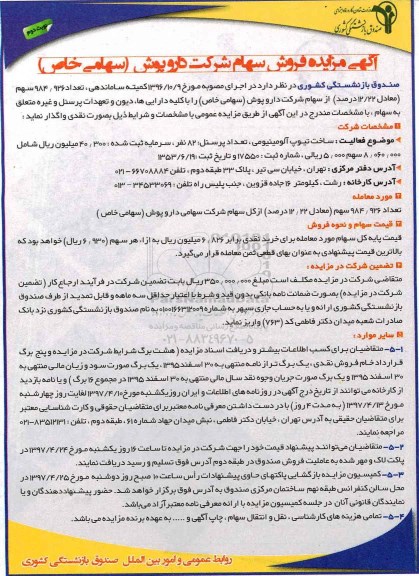 صندوق بازنشستگی کشوری
نوبت دوم
آگهی مزایده فروش سهام شرکت دارو پوش (سهامی خاص)
صندوق بازنشستگی کشوری در نظر دارد در اجرای مصوبه مورخ ۱۳۹۶/۱۰/۹ کمیته ساماندهی، تعداد ۹۸۴٬۹۲۶ سهم
(معادل ۱۲/۲۲ درصد) از سهام شرکت دارو پوش (سهامی خاص) را با کلیه دارایی ها، دیون و تعهدات پرسنل و غیره متعلق
به سهام، با مشخصات مندرج در این آگهی از طریق مزایده عمومی با مشخصات و شرایط ذیل بصورت نقدی واگذار نماید:
مشخصات شرکت
موضوع فعالیت: ساخت تیوپ آلومینیومی، تعداد پرسنل: ۸۲ نفر، سرمایه ثبت شده: ۴۰٬۳۰۰ میلیون ریال شامل
۸٬۰۶۰٬۰۰۰ سهم ۵٬۰۰۰ ریالی، شماره ثبت: ۱۷۵۵۰ و تاریخ ثبت: ۱۳۵۳/۶/۱۹
آدرس دفتر مرکزی: تهران، خیابان سی تیر، پلاک ۳۳ طبقه دوم، تلفن ۶۶۷۰۸۸۸۴-۰۲۱
آدرس کارخانه: رشت، کیلومتر ۱۶ جاده قزوین، جنب پلیس راه تلفن: ۳۳۵۳۳۰۶۹-۰۱۳
مورد معامله
تعداد ۹۸۴٬۹۲۶ سهم (معادل ۱۲٬۲۲ درصد) از کل سهام شرکت سهامی دارو پوش (سهامی خاص)
قیمت سهام و نحوه فروش
قیمت پایه کل سهام مورد معامله برای خرید نقدی برابر ۶٬۸۲۶ میلیون ریال به ازاء هر سهم (۶٬۹۳۰ ریال) خواهد بود که
بالاترین قیمت پیشنهادی به عنوان بهای قطعی ثمن معامله قرار می‌گیرد.
تضمین شرکت در مزایده:
متقاضی شرکت در مزایده مکلف است مبلغ ۳۵۰٬۰۰۰٬۰۰۰ ریال بابت تضمین شرکت در فرآیند ارجاع کار (تضمین
شرکت در مزایده) بصورت ضمانت نامه بانکی بدون قید و شرط با اعتبار حداقل سه ماهه و قابل تمدید از طرف صندوق
بازنشستگی کشوری ارائه و یا به حساب جاری سپهر به شماره به نام صندوق بازنشستگی کشوری نزد بانک
صادرات شعبه میدان دکتر فاطمی کد (۷۶۳) واریز نماید.
سایر موارد:
۵-۱- متقاضیان برای کسب اطلاعات بیشتر و دریافت اسناد مزایده (هشت برگ شرایط شرکت در مزایده و پنج برگ
قرارداد خام فروش نقدی، یک برگ تراز نامه منتهی به ۳۰ اسفند ۱۳۹۵، یک برگ صورت سود و زیان مالی منتهی به
۳۰ اسفند ۱۳۹۵ و یک برگ صورت جریان وجوه نقد سال مالی منتهی به ۳۰ اسفند ۱۳۹۵ در مجموع ۱۶ برگ) و یا نامه بازدید
از کارخانه می توانند از تاریخ درج آگهی در روزنامه های اطلاعات و ایران روز یکشنبه مورخ ۱۳۹۷/۴/۱۰ لغایت روز چهارشنبه
مورخ ۱۳۹۷/۴/۱۳ (به مدت ۴ روز) با در دست داشتن معرفی نامه معتبر برای متقاضیان حقوقی و کارت شناسایی معتبر
برای متقاضیان حقیقی به آدرس تهران، خیابان دکتر فاطمی، نبش میدان جهاد شماره ۶۱، طبقه دوم، تلفن:
مراجعه نمایند.
۵-۲- متقاضیان می توانند پیشنهاد قیمت خود را جهت شرکت در مزایده تا ساعت ۱۶ روز یکشنبه مورخ ۱۳۹۷/۴/۲۴ در
پاکت لاک و مهر شده به عاملیت فروش صندوق در طبقه دوم آدرس فوق تسلیم و رسید دریافت نمایند.
۵-۳- کمیسیون مزایده بازگشایی پاکتهای حاوی پیشنهادات رأس ساعت ۱۰ صبح روز دوشنبه مورخ ۱۳۹۷/۴/۲۵ در
محل سالن کنفرانس طبقه نهم ساختمان مرکزی صندوق به آدرس فوق برگزار خواهد شد. حضور پیشنهاد دهندگان و یا
نمایندگان قانونی آنان در جلسه کمیسیون مزایده با ارائه معرفی نامه معتبر آزاد می‌باشد.
۵-۴- تمامی هزینه های کارشناسی، نقل و انتقال سهام، چاپ آگهی و ..... به عهده برنده مزایده می باشد.
روابط عمومی و امور بین الملل صندوق بازنشستگی کشوری